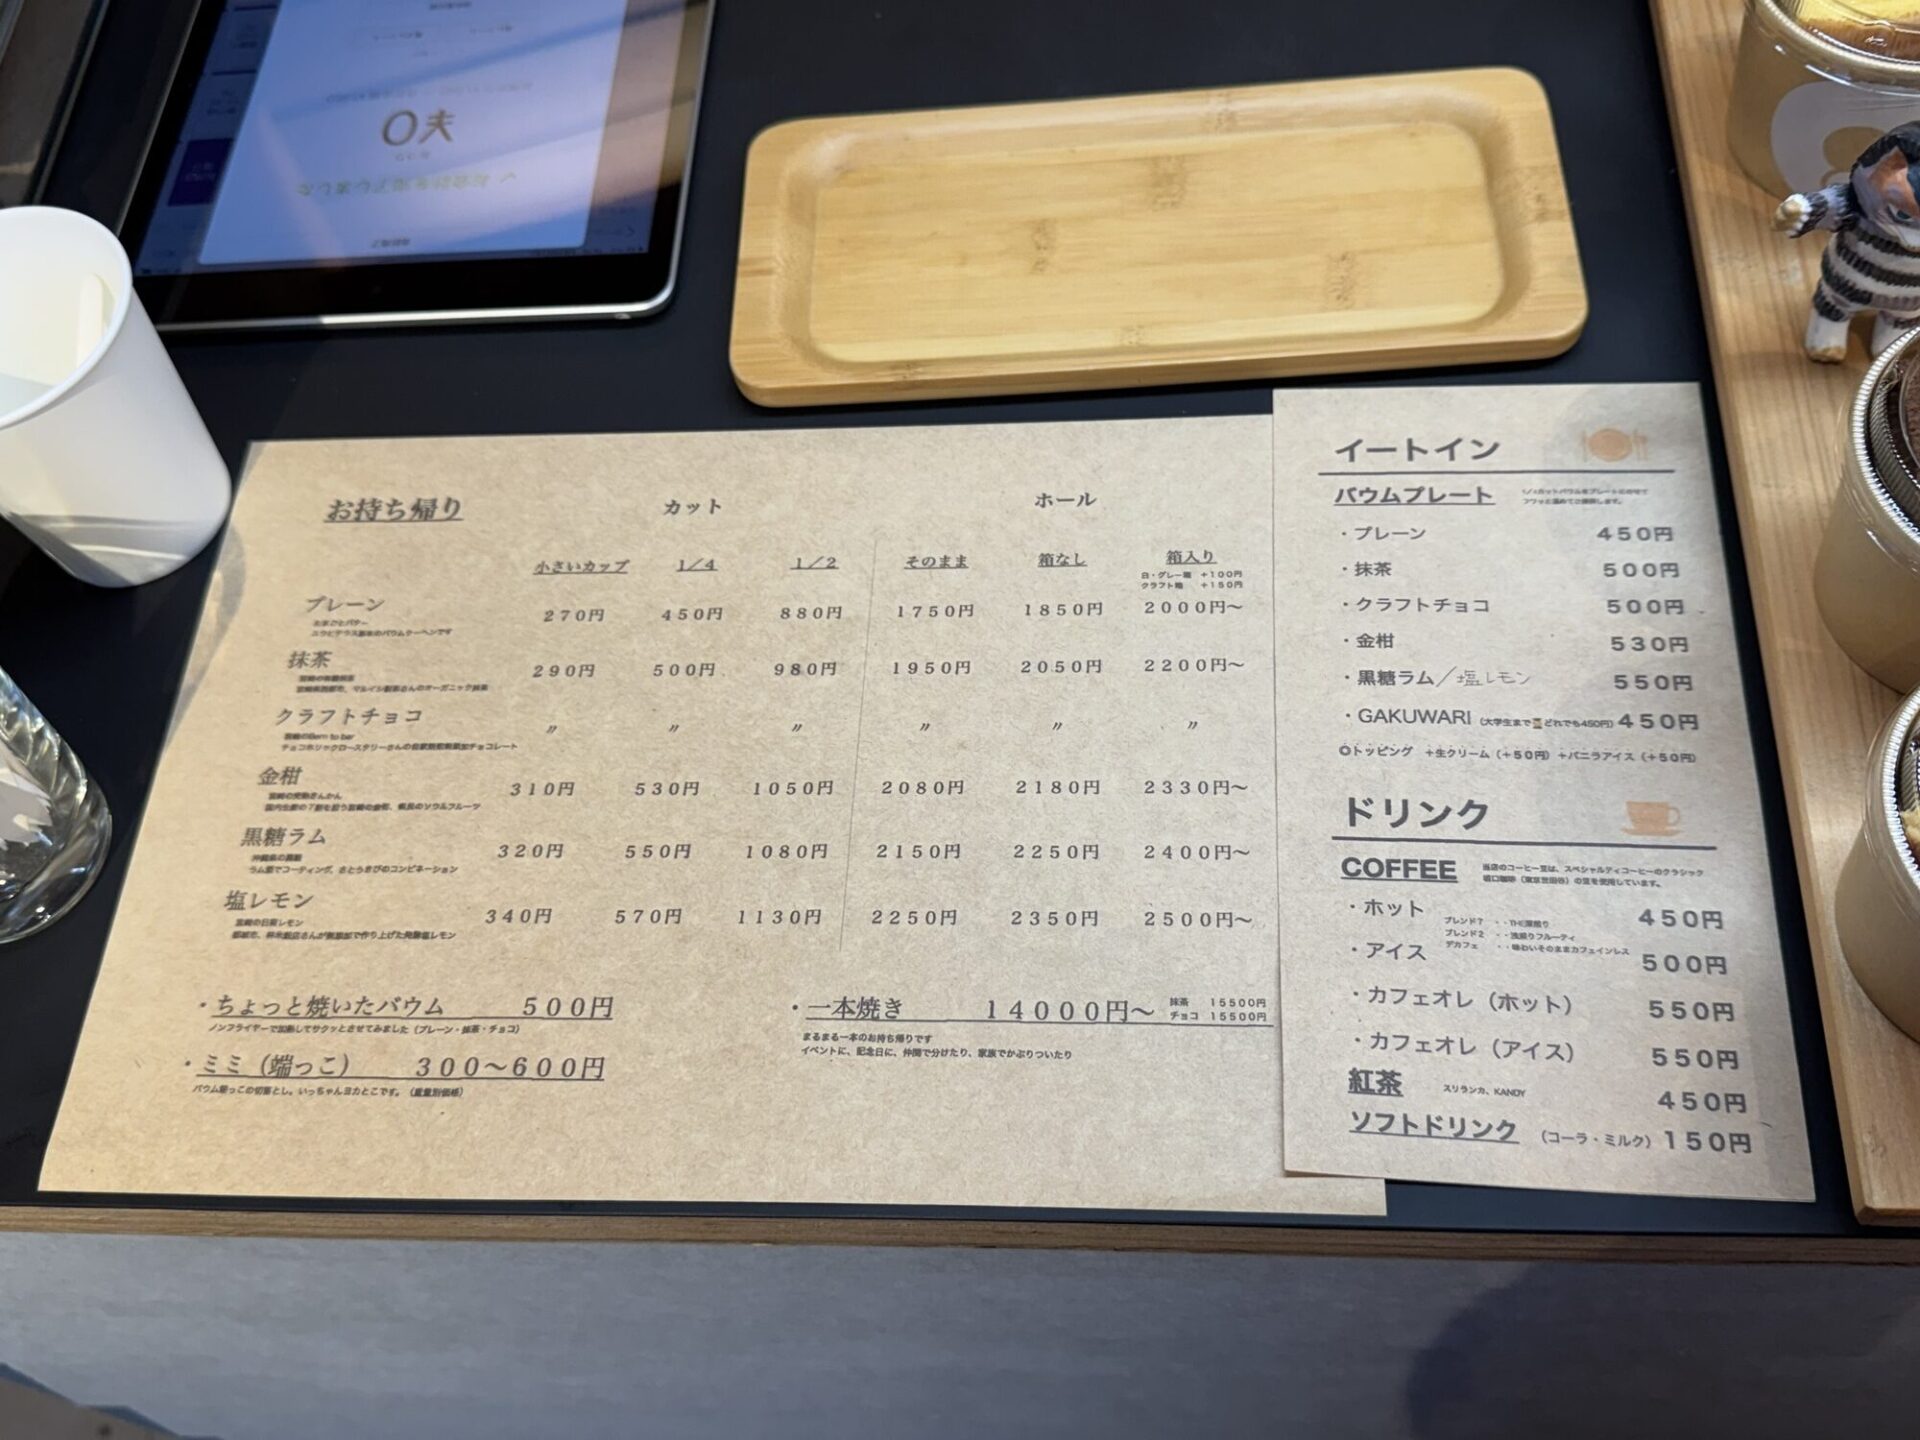 お持ち帰り
カット
ホール
小さいカップ 1/4 1/2 そのまま 箱なし 箱入り
白・グレー箱 +100円
クラフト箱 +150円
プレーン 270円 450円 880円 1750円 1850円 2000円〜
抹茶 290円 500円 980円 1950円 2050円 2200円〜
宮崎の有機抹茶
クラフトチョコ 〃 〃 〃 〃 〃 〃
金柑 310円 530円 1050円 2080円 2180円 2330円〜
黒糖ラム 320円 550円 1080円 2150円 2250円 2400円〜
ラム酒でコーティング、さとうきびのコンビネーション
塩レモン 340円 570円 1130円 2250円 2350円 2500円〜
宮崎の日南レモン
・ちょっと焼いたバウム 500円
ノンフライヤーで加熱してサクッとさせてみました（プレーン・抹茶・チョコ）
・ミミ（端っこ） 300〜600円
バウム端っこの切落とし。いっちゃんヨカとこです。（重量別価格）
・一本焼き 14000円〜
抹茶 15500円
チョコ 15500円
まるまる一本のお持ち帰りです
イベントに、記念日に、仲間で分けたり、家族でかぶりついたり
イートイン
バウムプレート
・プレーン 450円
・抹茶 500円
・クラフトチョコ 500円
・金柑 530円
・黒糖ラム／塩レモン 550円
・GAKUWARI（大学生まで どれでも450円）450円
◎トッピング +生クリーム（+50円）+バニラアイス（+50円）
ドリンク
COFFEE
当店のコーヒー豆は、スペシャルティコーヒーのクラシック
堀口珈琲（東京世田谷）の豆を使用しています。
・ホット 450円
ブレンド7 ・・THE深煎り
ブレンド2 ・・浅煎りフルーティ
デカフェ ・・味わいそのままカフェインレス
・アイス 500円
・カフェオレ（ホット） 550円
・カフェオレ（アイス） 550円
紅茶 スリランカ、KANDY 450円
ソフトドリンク （コーラ・ミルク）150円